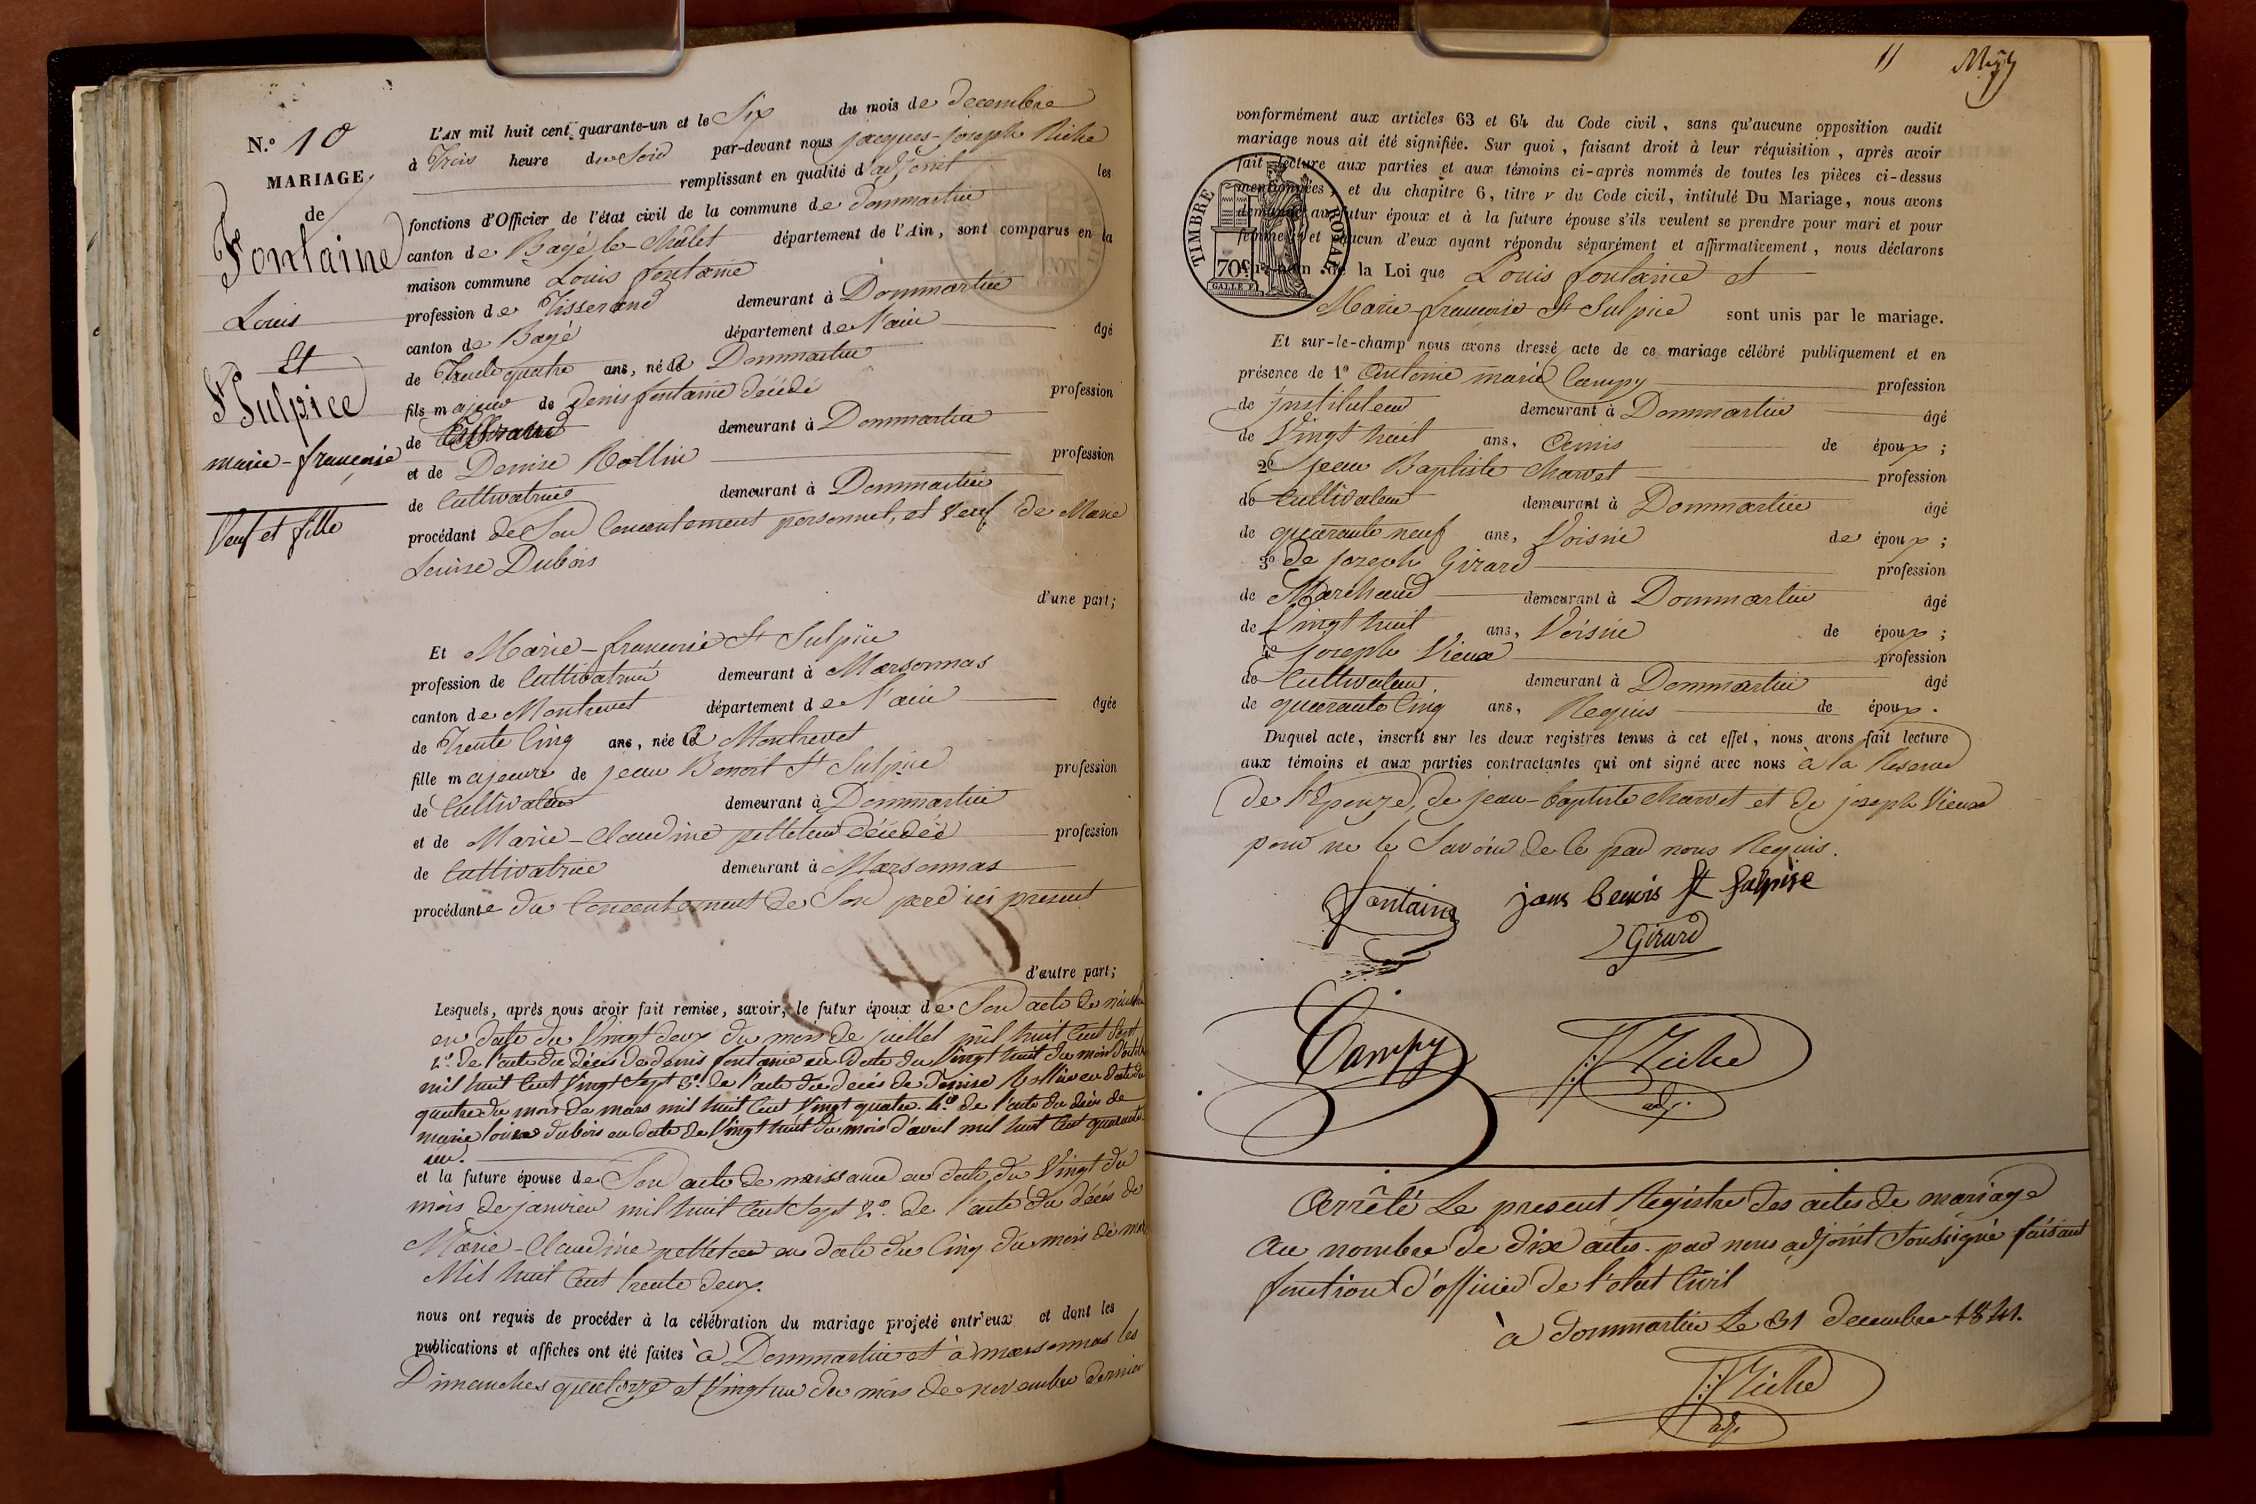 N.º 10
MARIAGE
de
Fontaine
Louis
Et
St Sulpice
marie-françoise
Veuf et fille
L'AN mil huit cent quarante-un et le Six du mois de decembre
à Trois heure du Soir par-devant nous jacques-joseph Riche
remplissant en qualité d'adjoint les
fonctions d'Officier de l'état civil de la commune de Dommartin
canton de Bagé-le-Châtel département de l'Ain, sont comparus en la
maison commune Louis fontaine
profession de Tisserand demeurant à Dommartin
canton de Bagé département de l'ain âgé
de Trente quatre ans, né à Dommartin
fils majeur de Denis fontaine décédé profession
de demeurant à Dommartin
et de Denise Rollin profession
de Cultivatrice demeurant à Dommartin
procédant de Son Consentement personnel, et Veuf de Marie
Louise Dubois
d'une part;
Et Marie-françoise St Sulpice
profession de Cultivatrice demeurant à Marsonnas
canton de Montrevet département de l'ain âgée
de Trente Cinq ans, née à Montrevet
fille majeure de jean Benoit St Sulpice profession
de Cultivateur demeurant à Dommartin
et de Marie-Claudine pelletier décédée profession
de Cultivatrice demeurant à Marsonnas
procédante du Consentement de Son père ici present
d'autre part;
Lesquels, après nous avoir fait remise, savoir; le futur époux de Son acte de
en date du Vingt deux du mois de juillet mil huit Cent Sept
2.º de l'acte du décès de denis fontaine en date du Vingt huit du mois
mil huit Cent Vingt Sept 3.º de l'acte du decès de Denise Rollin en date du
quatre du mois de mars mil huit Cent Vingt quatre. 4.º de l'acte du décès de
marie louise dubois en date de Vingt huit du mois d'avril mil huit Cent quarante
un.
et la future épouse de Son acte de naissance en date du Vingt du
mois de janvier mil huit Cent Sept 2.º de l'acte du décès de
Marie-Claudine pelletier en date du Cinq du mois de
Mil huit Cent trente deux.
nous ont requis de procéder à la célébration du mariage projeté entr'eux et dont les
publications et affiches ont été faites à Dommartin et à marsonnas les
Dimanches quatorze et Vingt un du mois de novembre dernier
11
conformément aux articles 63 et 64 du Code civil, sans qu'aucune opposition audit
mariage nous ait été signifiée. Sur quoi, faisant droit à leur réquisition, après avoir
fait lecture aux parties et aux témoins ci-après nommés de toutes les pièces ci-dessus
mentionnées, et du chapitre 6, titre v du Code civil, intitulé Du Mariage, nous avons
demandé au futur époux et à la future épouse s'ils veulent se prendre pour mari et pour
femme; et chacun d'eux ayant répondu séparément et affirmativement, nous déclarons
au nom de la Loi que Louis fontaine et
Marie-françoise St Sulpice sont unis par le mariage.
TIMBRE ROYAL
70c
Et sur-le-champ nous avons dressé acte de ce mariage célébré publiquement et en
présence de 1º Antoine marie Campy profession
de jnstituteur demeurant à Dommartin âgé
de Vingt huit ans, Amis de époux;
2º jean Baptiste Charvet profession
de Cultivateur demeurant à Dommartin âgé
de quarante neuf ans, Voisin de époux;
3º De joseph Girard profession
de Marchand demeurant à Dommartin âgé
de Vingt huit ans, Voisin de époux;
4º joseph Vieux profession
de Cultivateur demeurant à Dommartin âgé
de quarante Cinq ans, Requis de époux.
Duquel acte, inscrit sur les deux registres tenus à cet effet, nous avons fait lecture
aux témoins et aux parties contractantes qui ont signé avec nous à la Reserve
de l'Epouze, de jean-baptiste Charvet et de joseph Vieux
pour ne le Savoir de Ce par nous Requis.
fontaine jean benois St Sulpise
Girard
Campy J: Riche
adj.
Arrêté Le present Registre des actes de mariage
au nombre de dix actes par nous adjoint Soussigné faisant
fonction d'officier de l'etat Civil
à dommartin Le 31 decembre 1841.
J: Riche
adj.